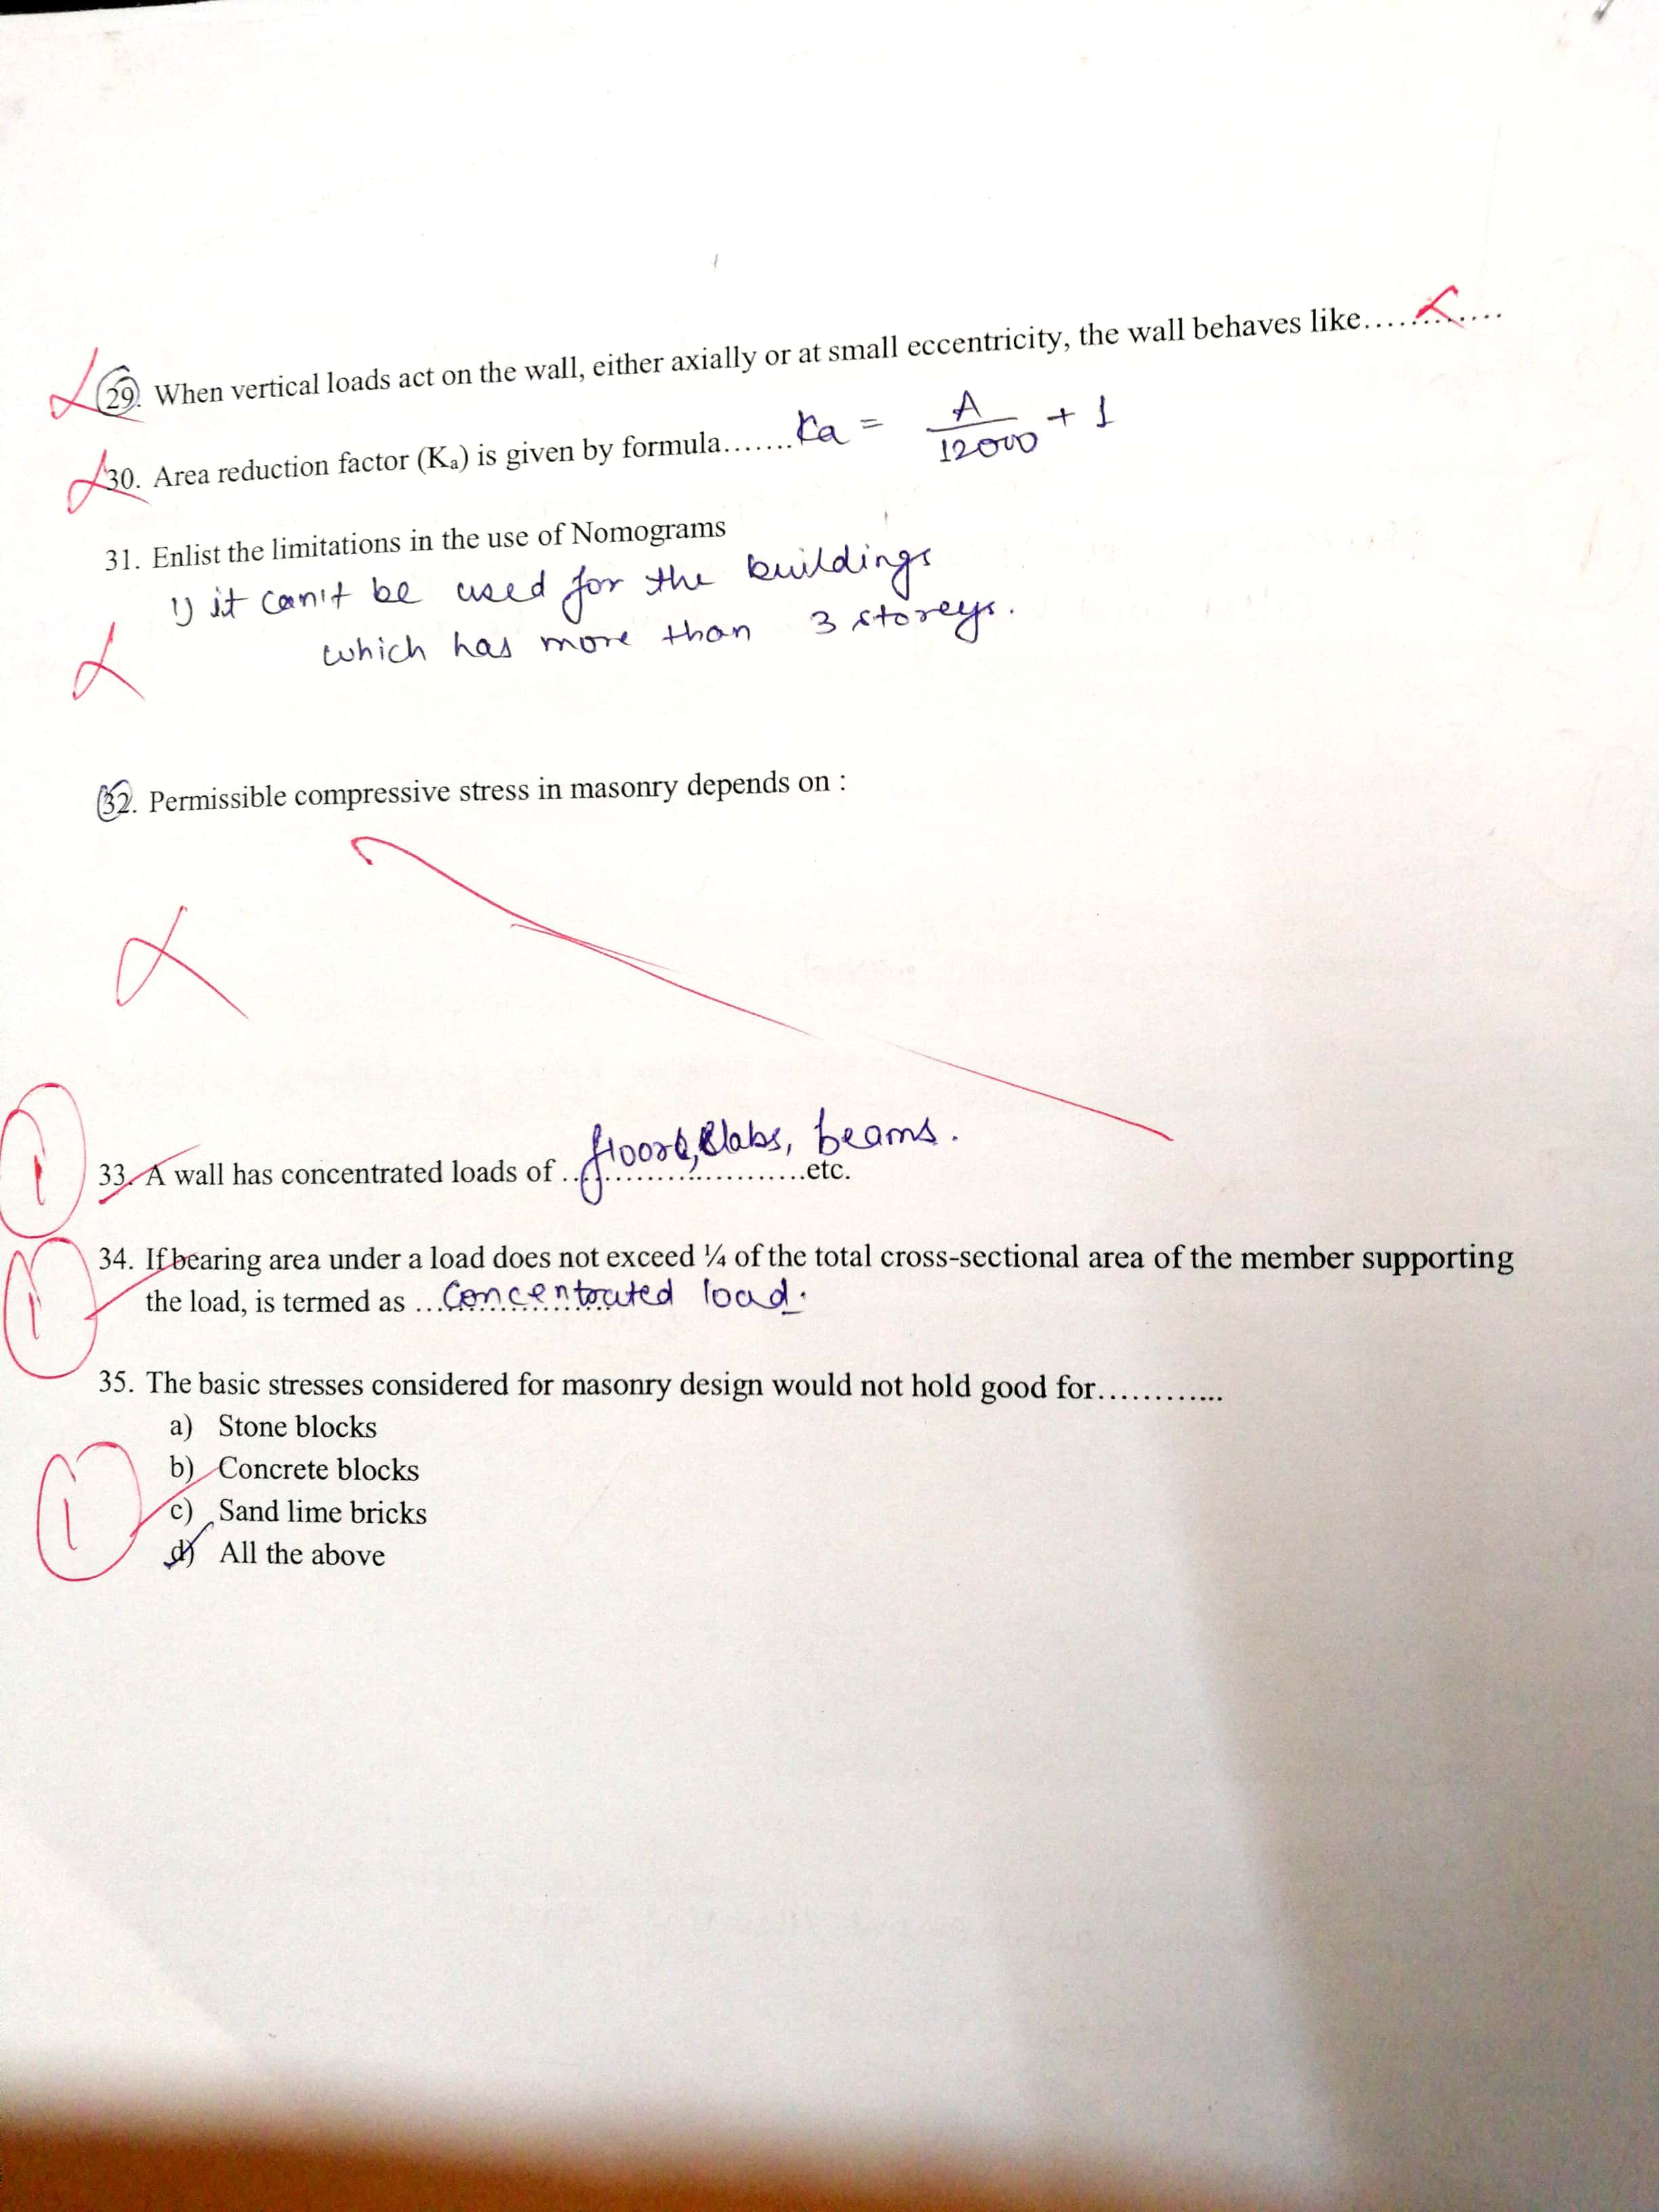 29. When vertical loads act on the wall, either axially or at small eccentricity, the wall behaves like............
30. Area reduction factor (Kₐ) is given by formula.......Ka = A/12000 + 1
31. Enlist the limitations in the use of Nomograms
1) it can't be used for the buildings
which has more than 3 storeys.
32. Permissible compressive stress in masonry depends on :
33. A wall has concentrated loads of ........................etc.
floors, slabs, beams.
34. If bearing area under a load does not exceed ¼ of the total cross-sectional area of the member supporting
the load, is termed as ...Concentrated load.
35. The basic stresses considered for masonry design would not hold good for............
a) Stone blocks
b) Concrete blocks
c) Sand lime bricks
d) All the above
1
1
1